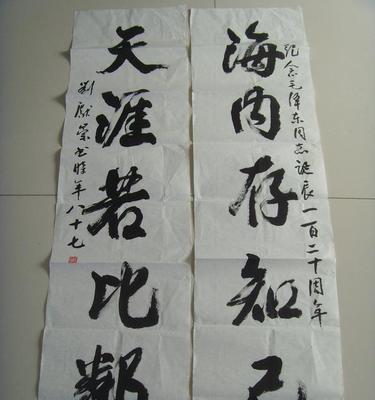 纪念毛泽东同志诞辰一百二十周年
海内存知己
天涯若比鄰
劉獻榮书時年八十七